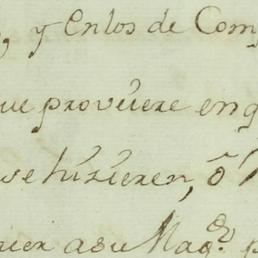 , y en los de Com
ue proveiere en q
se hizieren, ô
uier a su Mag.^d p